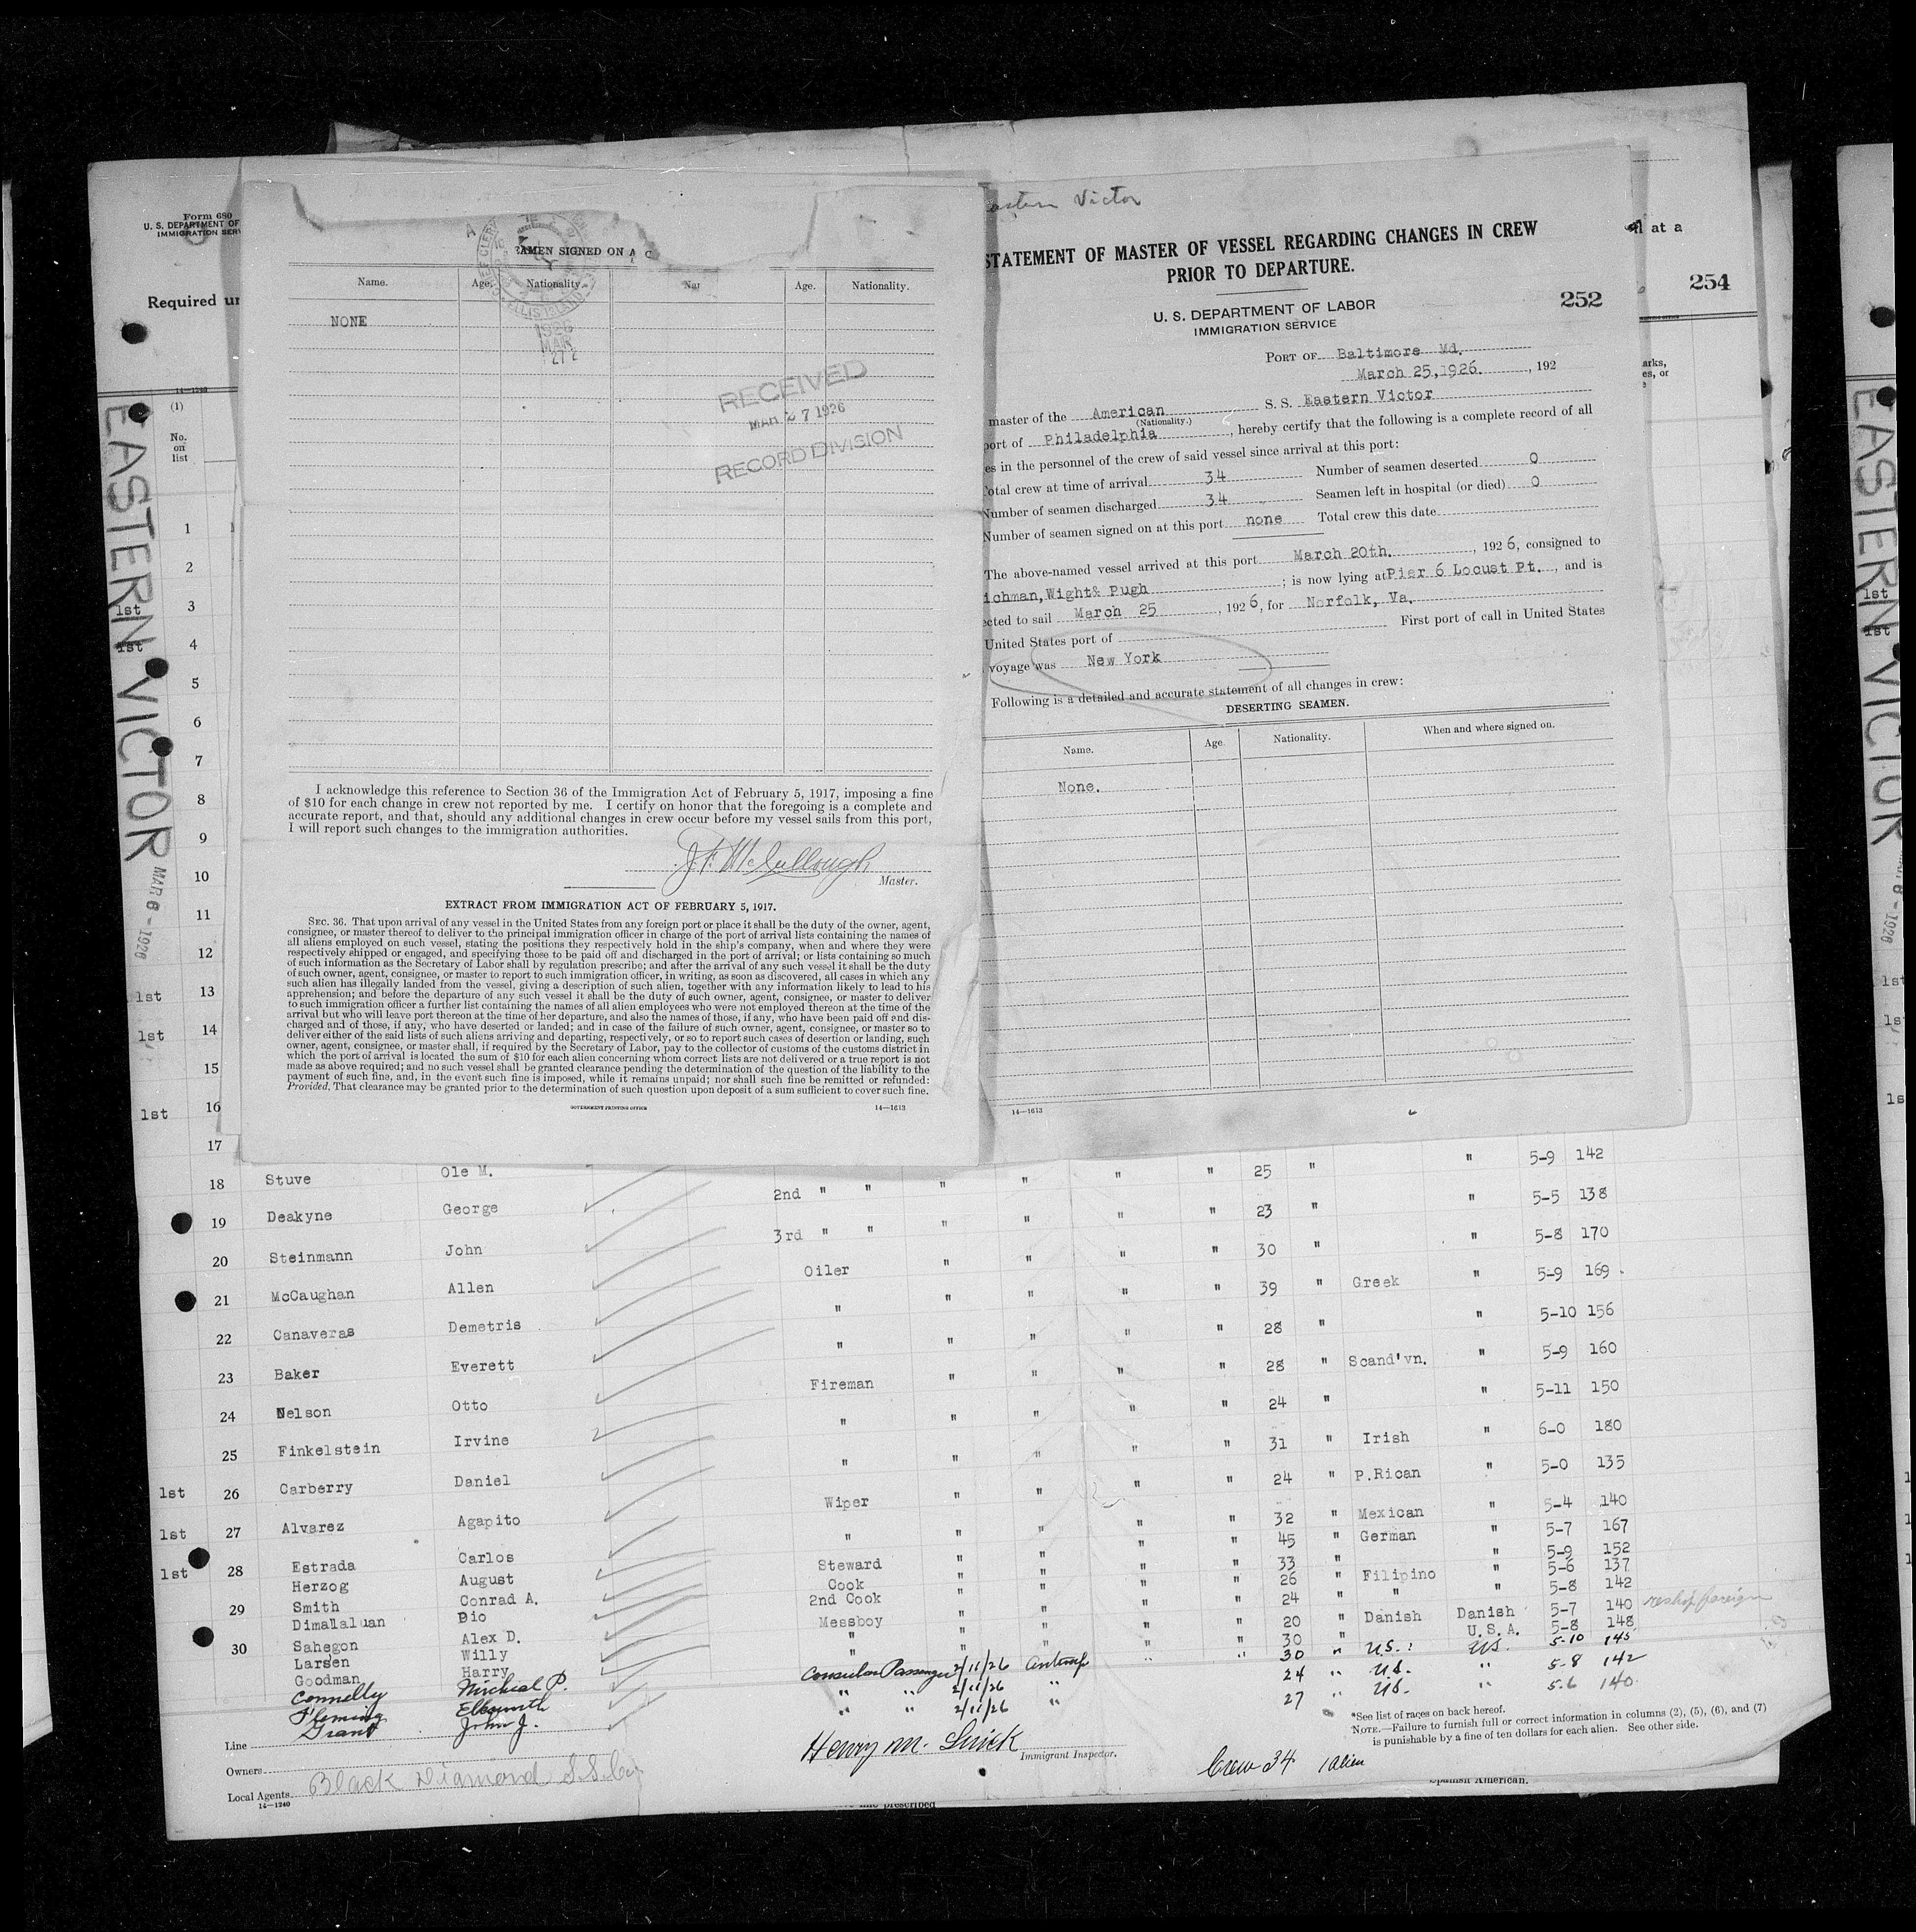 Form 680
U. S. DEPARTMENT OF
IMMIGRATION SERV
Required un
14—1240
(1)
No.
on
list
EASTERN VICTOR
MAR 6 - 1926
1
2
1st 3
1st 4
5
6
7
8
9
10
11
12
1st 13
1st 14
15
1st 16
17
AMEN SIGNED ON A
Name. Age. Nationality. Nar Age. Nationality.
NONE
ELLIS ISLAND
1926
MAR
27
RECEIVED
MAR 27 1926
RECORD DIVISION
I acknowledge this reference to Section 36 of the Immigration Act of February 5, 1917, imposing a fine
of $10 for each change in crew not reported by me. I certify on honor that the foregoing is a complete and
accurate report, and that, should any additional changes in crew occur before my vessel sails from this port,
I will report such changes to the immigration authorities.
J. F. McCullough
Master.
EXTRACT FROM IMMIGRATION ACT OF FEBRUARY 5, 1917.
SEC. 36. That upon arrival of any vessel in the United States from any foreign port or place it shall be the duty of the owner, agent,
consignee, or master thereof to deliver to the principal immigration officer in charge of the port of arrival lists containing the names of
all aliens employed on such vessel, stating the positions they respectively hold in the ship's company, when and where they were
respectively shipped or engaged, and specifying those to be paid off and discharged in the port of arrival; or lists containing so much
of such information as the Secretary of Labor shall by regulation prescribe; and after the arrival of any such vessel it shall be the duty
of such owner, agent, consignee, or master to report to such immigration officer, in writing, as soon as discovered, all cases in which any
such alien has illegally landed from the vessel, giving a description of such alien, together with any information likely to lead to his
apprehension; and before the departure of any such vessel it shall be the duty of such owner, agent, consignee, or master to deliver
to such immigration officer a further list containing the names of all alien employees who were not employed thereon at the time of the
arrival but who will leave port thereon at the time of her departure, and also the names of those, if any, who have been paid off and dis-
charged and of those, if any, who have deserted or landed; and in case of the failure of such owner, agent, consignee, or master so to
deliver either of the said lists of such aliens arriving and departing, respectively, or so to report such cases of desertion or landing, such
owner, agent, consignee, or master shall, if required by the Secretary of Labor, pay to the collector of customs of the customs district in
which the port of arrival is located the sum of $10 for each alien concerning whom correct lists are not delivered or a true report is not
made as above required; and no such vessel shall be granted clearance pending the determination of the question of the liability to the
payment of such fine, and, in the event such fine is imposed, while it remains unpaid; nor shall such fine be remitted or refunded:
Provided, That clearance may be granted prior to the determination of such question upon deposit of a sum sufficient to cover such fine.
GOVERNMENT PRINTING OFFICE 14—1613
astern Victor
STATEMENT OF MASTER OF VESSEL REGARDING CHANGES IN CREW
PRIOR TO DEPARTURE.
U. S. DEPARTMENT OF LABOR
IMMIGRATION SERVICE
252
PORT OF Baltimore Md.
March 25,1926. , 192
master of the American S. S. Eastern Victor
(Nationality.)
port of Philadelphia , hereby certify that the following is a complete record of all
es in the personnel of the crew of said vessel since arrival at this port:
Total crew at time of arrival 34 Number of seamen deserted 0
Number of seamen discharged 34 Seamen left in hospital (or died) 0
Number of seamen signed on at this port none Total crew this date
The above-named vessel arrived at this port March 20th. , 192 6, consigned to
ichman,Wight& Pugh ; is now lying at Pier 6 Locust Pt. , and is
ected to sail March 25 , 192 6, for Norfolk, Va.
United States port of First port of call in United States
voyage was New York
Following is a detailed and accurate statement of all changes in crew:
DESERTING SEAMEN.
Name. Age. Nationality. When and where signed on.
None.
14—1613
al at a
254
arks,
es, or
" " " " 25 " " 5-9 142
18 Stuve Ole M. 2nd " " " " " " 23 " " 5-5 138
19 Deakyne George 3rd " " " " " " 30 " " 5-8 170
20 Steinmann John Oiler " " " " 39 " Greek " 5-9 169
21 McCaughan Allen " " " " " 28 " " 5-10 156
22 Canaveras Demetris " " " " " 28 " Scand'vn. " 5-9 160
23 Baker Everett Fireman " " " " 24 " " 5-11 150
24 Nelson Otto " " " " " 31 " Irish " 6-0 180
25 Finkelstein Irvine " " " " " 24 " P.Rican " 5-0 135
1st 26 Carberry Daniel Wiper " " " " 32 " Mexican " 5-4 140
1st 27 Alvarez Agapito " " " " " 45 " German " 5-7 167
1st 28 Estrada Carlos Steward " " " " 33 " " 5-9 152
Herzog August Cook " " " " 26 " Filipino " 5-6 137
29 Smith Conrad A. 2nd Cook " " " " 24 " " " 5-8 142
Dimallaluan Dio Messboy " " " " 20 " Danish Danish 5-7 140 reship foreign
30 Sahegon Alex D. " " " " " 30 " U.S.A. 5-8 148
Larsen Willy " " " " " 30 " U.S. US. 5-10 145
Goodman Harry Consular Passenger 2/11/26 Antwerp 24 " U.S. " 5-8 142
Connelly Micheal P. " " 2/11/26 " 27 " US. " 5-6 140
Fleming Ellsworth " " 2/11/26 "
Grant John J.
Line
Owners
Local Agents Black Diamond S.S. Co.
14—1240
Henry M. Snick
Immigrant Inspector.
Crew 34 1 Alien
*See list of races on back hereof.
NOTE.—Failure to furnish full or correct information in columns (2), (5), (6), and (7)
is punishable by a fine of ten dollars for each alien. See other side.
Spanish American.
prescribed
EASTERN VICTOR
1st
1st
- 1926